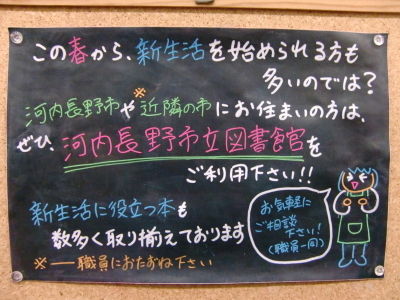 この春から、新生活を始められる方も
多いのでは?
※
河内長野市や近隣の市にお住まいの方は、
ぜひ、河内長野市立図書館を
ご利用下さい!!
新生活に役立つ本も
数多く取り揃えております
※ー職員におたずね下さい
お気軽に
ご相談
下さい!
(職員一同)